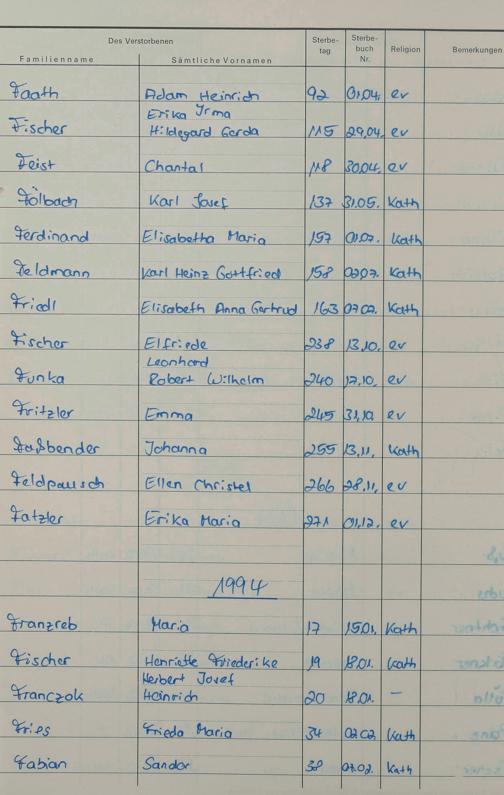 Des Verstorbenen Sterbe- Sterbe-
tag buch Religion Bemerkungen
Familienname Sämtliche Vornamen Nr.
Faath Adam Heinrich 92 01.04. ev
Erika Irma
Fischer Hildegard Gerda 115 29.04. ev
Feist Chantal 118 30.04. ev
Fölbach Karl Josef 137 31.05. Kath
Ferdinand Elisabetha Maria 157 01.07. Kath
Feldmann Karl Heinz Gottfried 158 Kath
Friedl Elisabeth Anna Gertrud 163 Kath
Fischer Elfriede 238 13.10. ev
Leonhard
Funka Robert Wilhelm 240 17.10. ev
Fritzler Emma 245 31.10. ev
Faßbender Johanna 255 13.11. Kath
Feldpausch Ellen Christel 266 28.11. ev
Fatzler Erika Maria 271 01.12. ev
1994
Franzreb Maria 17 15.01. Kath
Fischer Henriette Friederike 19 18.01. Kath
Herbert Josef
Franczok Heinrich 20 18.01. —
Fries Frieda Maria 34 02.02. Kath
Fabian Sandor 38 Kath